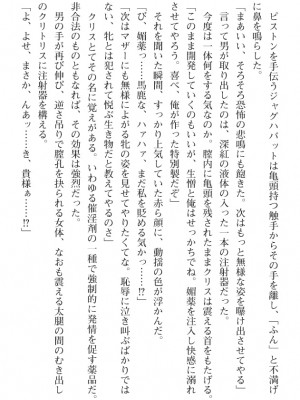 ピストンを手伝うジャグハバットは亀頭持つ触手からその手を離し、「ふん」と不満げ
に鼻を鳴らした。
「まあいい、そろそろ恐怖の鳴き声にも飽きた。次はもっと無様な姿を曝け出させてやる」
言って男が取り出したのは、深紅の液体の入った一本の注射器だった。
今度は一体何をする気なのか、膣内に亀頭を残されたままクリスは震える首をもたげる。
「このまま開発していくのもいいが、生憎と俺はせっかちでな。媚薬を注入し快感に溺れ
させてやろう。喜べ、俺が作った特別製だぞ」
それを聞いた瞬間、すっかり上気していた赤ら顔に、動揺の色が浮かんだ。
「び、媚薬っ……馬鹿な、ハァハァ、まだ私を貶める気かっ……!?」
「次はマザーにも無様によがる牝の姿を見せてやりたくてな。恥辱に泣き叫ぶばかりでは
ない、牝とは犯されて悦ぶ生き物だと教えてやるのさ」
クリスとてその名に覚えがある。いわゆる催淫剤の一種で強制的に発情を促す薬品だ。
非合法のものともなれば、その効果は強烈だった。
男の手が再び伸び、逆さ吊りで膣孔を抉られる女体、なおも震える太腿の間のむき出し
のクリトリスに注射器を構える。
「よ、よせ、まさか、んあっ……き、貴様ぁ……!?」